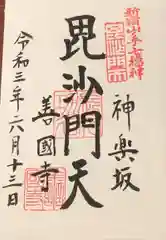 新宿山ノ手七福神
神樂坂
毘沙門天
善國寺
令和三年六月十三日